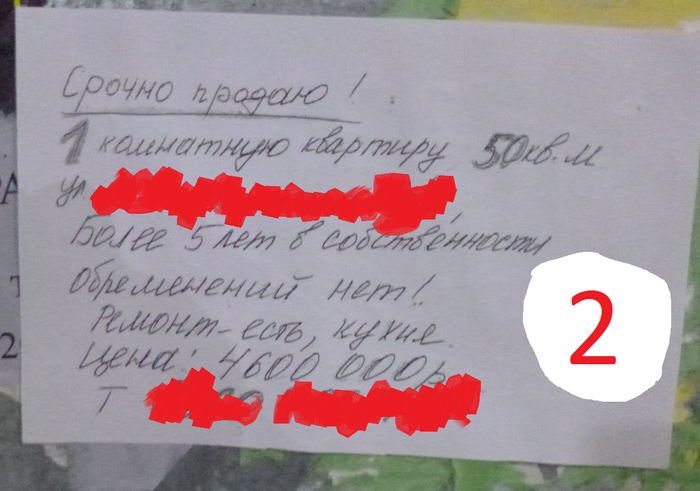 Срочно продаю!
1 комнатную квартиру 50 кв.м
ул
Более 5 лет в собственности
обременений нет!
Ремонт-есть, кухня.
Цена: 4600 000р
Т
2